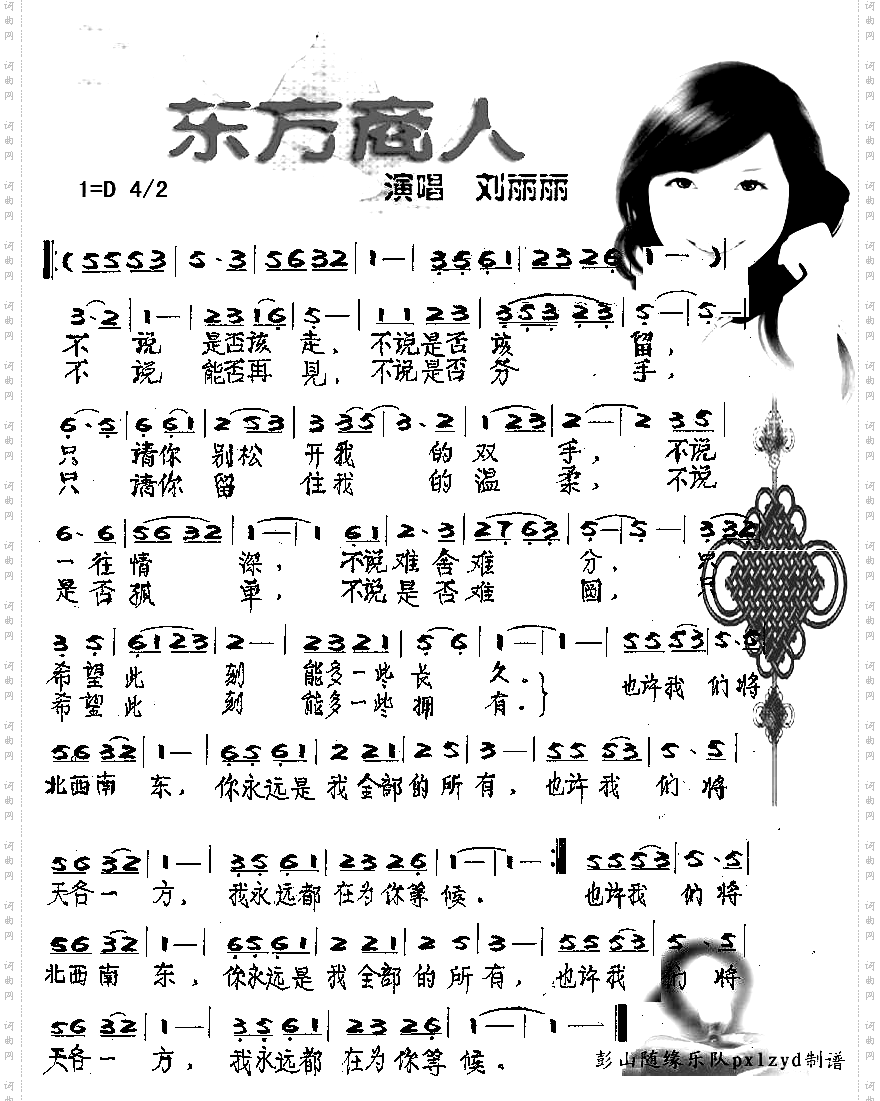 东方商人
1=D 4/2
演唱 刘丽丽
‖:( 5553 | 5·3 | 5632 | 1— | 3561 | 2326 | 1— ) |
3·2 | 1— | 2316 | 5— | 11 23 | 353 23 | 5— | 5— |
不 说 是否该 走，不说是否 该 留，
不 说 能否再 见，不说是否 分 手，
6·5 | 6 61 | 2 53 | 3 35 | 3·2 | 1 23 | 2— | 2 35 |
只 请你 别松 开我 的双 手，不说
只 请你 留 住我 的温 柔，不说
6·6 | 5632 | 1— | 1 61 | 2·3 | 2763 | 5— | 5— | 332 |
一往情 深，不说难舍难 分，只
是否孤 单，不说是否难 圆，只
3 5 | 6123 | 2— | 2321 | 5 6 | 1— | 1— | 5553 | 5·5 |
希望此 刻 能多一些长 久。 也许我 们将
希望此 刻 能多一些拥 有。
5632 | 1— | 6561 | 2 21 | 25 | 3— | 55 53 | 5·5 |
北西南 东，你永远是我全部的所有，也许我 们将
5632 | 1— | 3561 | 2326 | 1— | 1— :‖ 5553 | 5·5 |
天各一 方，我永远都在为你等候。 也许我 们将
5632 | 1— | 6561 | 2 21 | 2 5 | 3— | 5553 | 5·5 |
北西南 东，你永远是我全部的所有，也许我 们将
5632 | 1— | 3561 | 2326 | 1— | 1— ‖
天各一 方，我永远都在为你等候。
彭山随缘乐队pxlzyd制谱
词曲网